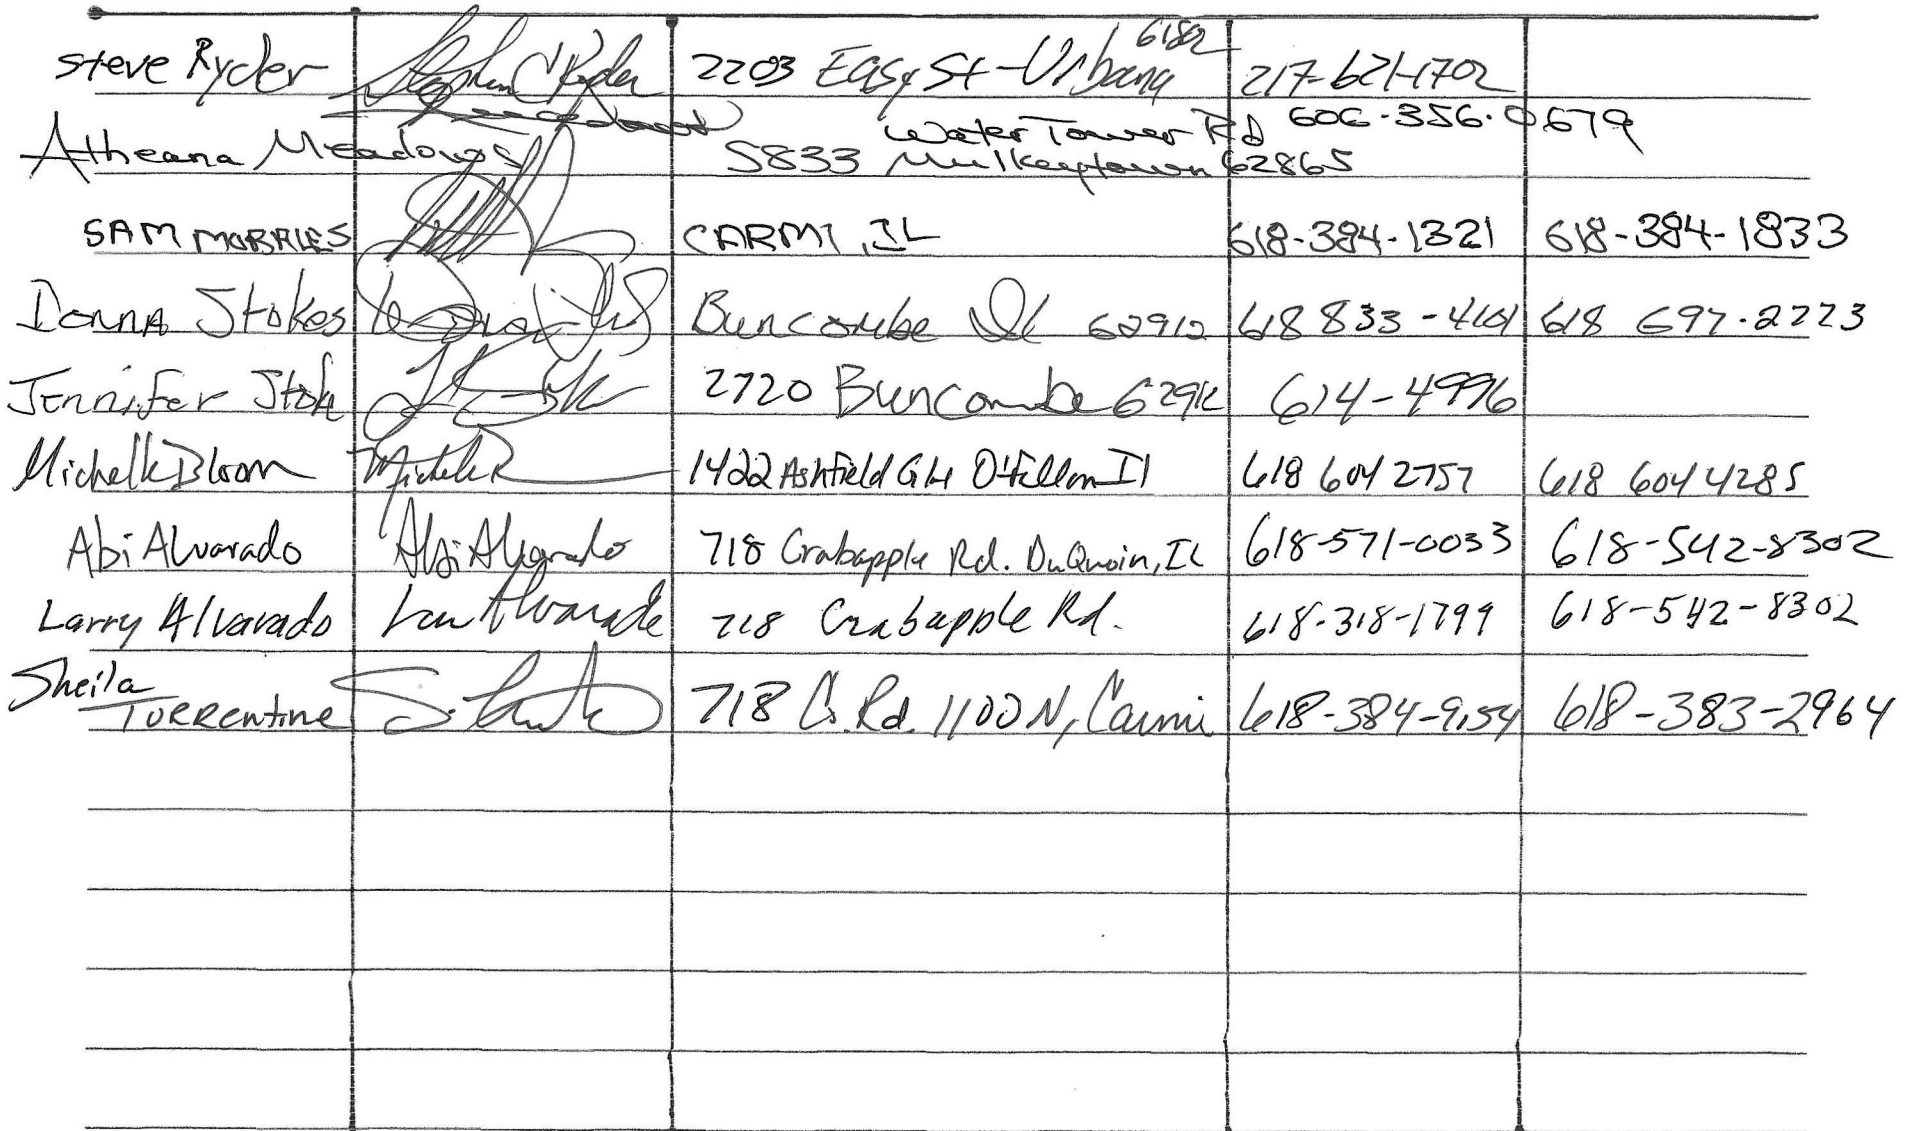 Steve Ryder Stephen C Ryder 2203 Easy St - Urbana 61802 217-621-1702
Atheana Meadows 5833 Water Tower Rd Mulkeytown 62865 606-356-0679
SAM MORALES CARMI, IL 618-384-1321 618-384-1833
Donna Stokes Buncombe Il 62912 618 833-4101 618 697-2223
Jennifer Stoke 2720 Buncombe 62912 614-4996
Michelle Bloom 1422 Ashfield O'Fallon Il 618 604 2757 618 604 4285
Abi Alvarado Abi Alvarado 718 Crabapple Rd. DuQuoin, IL 618-571-0033 618-542-8302
Larry Alvarado Alvarado 718 Crabapple Rd. 618-318-1799 618-542-8302
Sheila Turrentine 718 C. Rd. 1100 N, Carmi 618-384-9154 618-383-2964